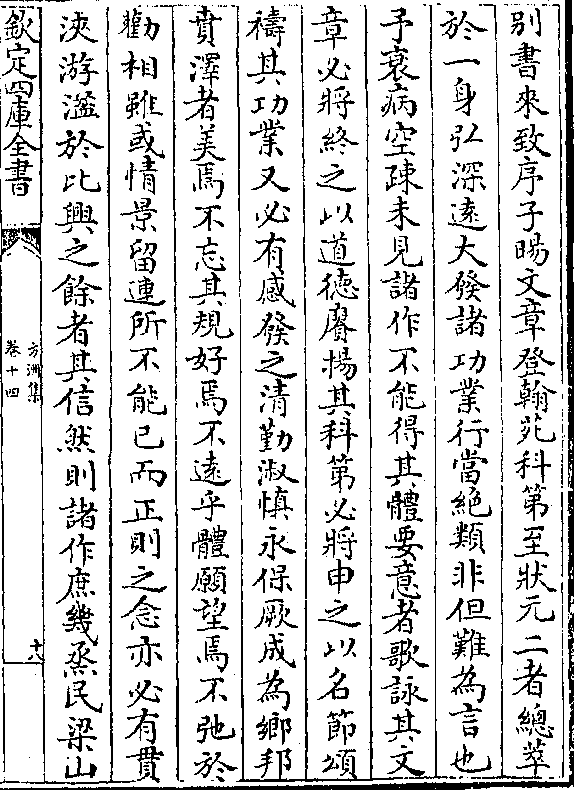 别書來致序子暘文章登翰苑科第至狀元二者總萃
於一身弘深遠大發諸功業行當絶類非但難為言也
予衰病空疎未見諸作不能得其體要意者歌詠其文
章必將終之以道德賡揚其科第必將申之以名節頌
禱其功業又必有感發之清勤淑慎永保厥成為鄉邦
賁澤者美焉不忘其規好焉不遠乎體願望焉不弛於
勸相雖或情景留連所不能已而正則之念亦必有貫
浹游濫於比興之餘者其信然則諸作庶幾烝民梁山
欽定四庫全書
方洲集
卷十四
十八